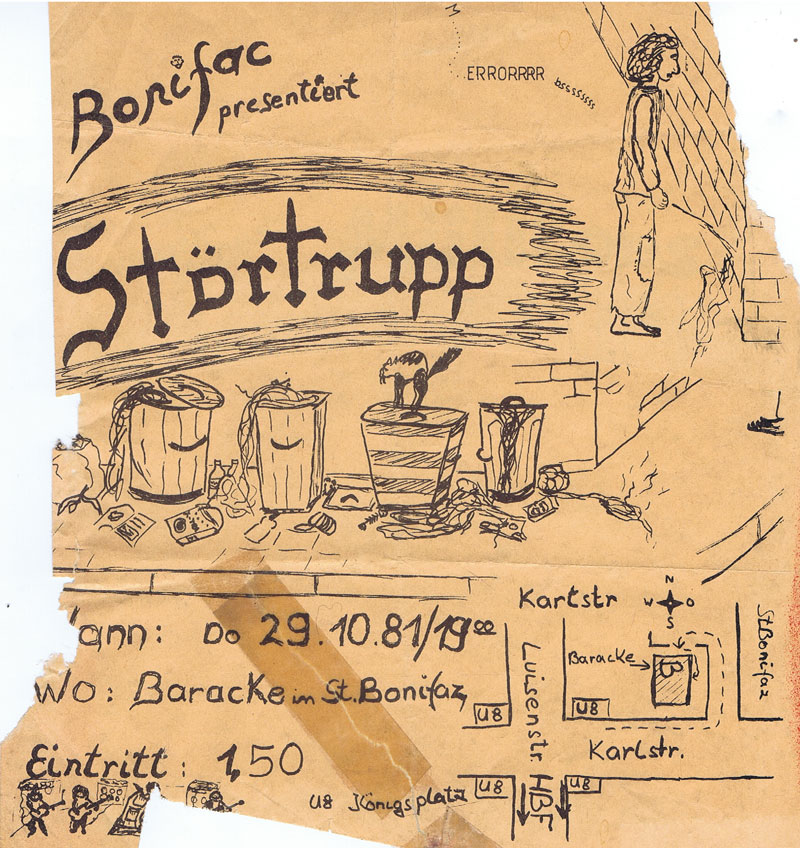 Bonifac
presentiert
ERRORRRR
bsssssssss
Störtrupp
ann: Do 29.10.81/19⁰⁰
Wo: Baracke im St. Bonifaz
Eintritt: 1,50
U8 Königsplatz
Karlstr
N
W O
S
Baracke
B
St Bonifaz
Luisenstr.
U8
U8
Karlstr.
U8
U8
HBF